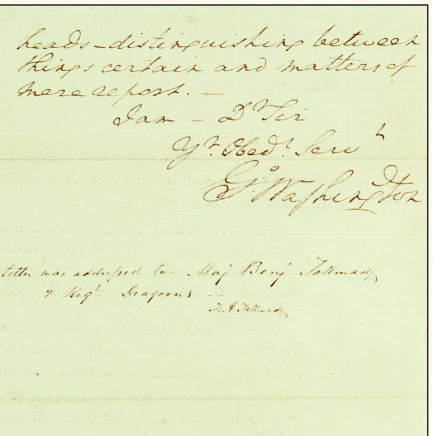 heads—distinguishing between
things certain and matters of
mere report. —
I am – Dr Sir
Yr. Obedt. Servt
Go. Washington
letter was addressed to Maj Benj Tallmadge
2 Regt Dragoons —
Tallmadge